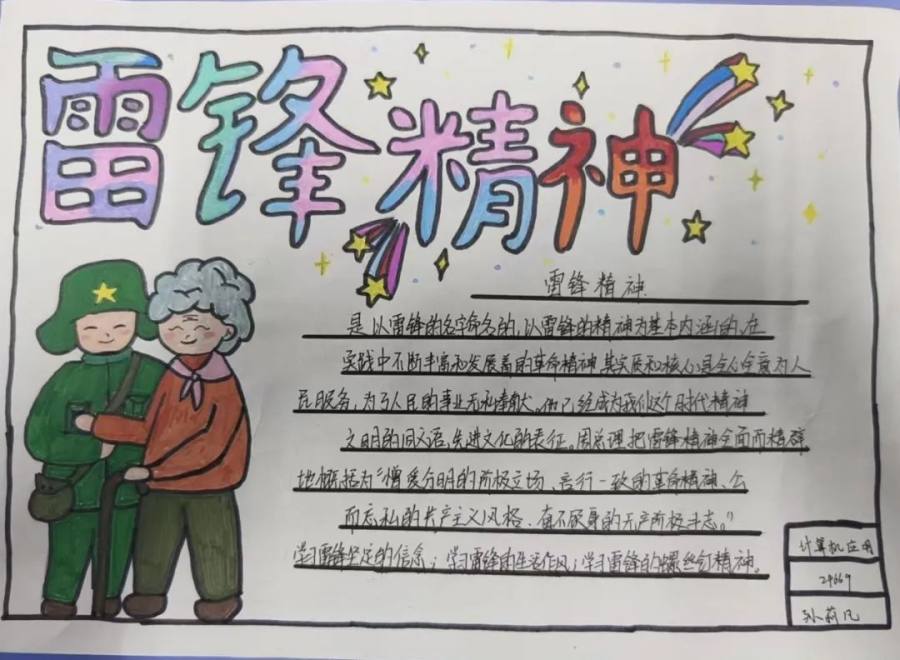 雷锋精神
雷锋精神
是以雷锋的名字命名的,以雷锋的精神为基本内涵的,在
实践中不断丰富和发展着的革命精神,其实质和核心是全心全意为人
民服务,为了人民的事业无私奉献。他已经成为我们这个时代精神
文明的同义语,先进文化的表征。周总理把雷锋精神全面而精辟
地概括为“憎爱分明的阶级立场、言行一致的革命精神、公
而忘私的共产主义风格、奋不顾身的无产阶级斗志。”
学习雷锋坚定的信念;学习雷锋的生活作风;学习雷锋的螺丝钉精神。
计算机应用
24669
孙莉凡